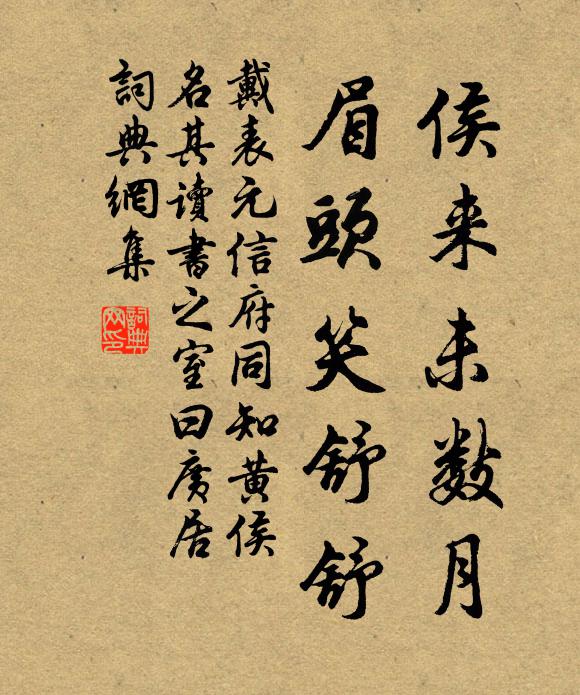 侯来未數月
眉頭笑舒舒
戴表元信府同知黃侯
名其讀書之室曰廣居
詞典網集
詞典网印